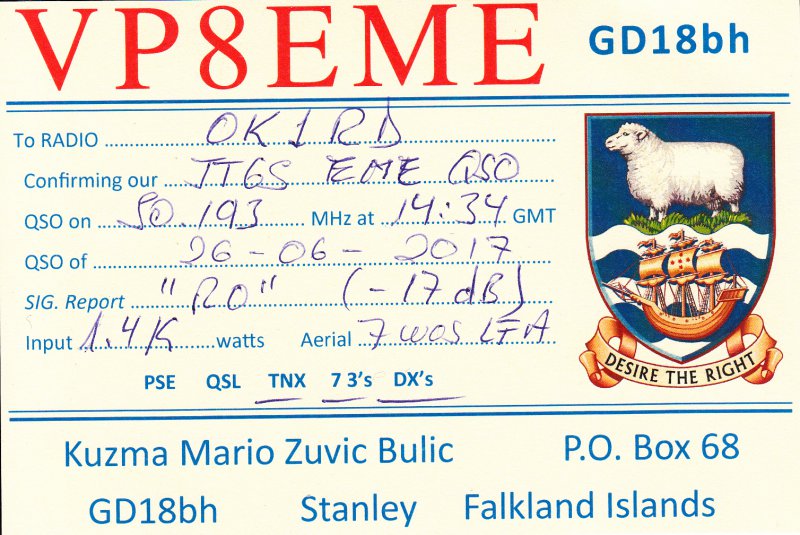 VP8EME GD18bh
To RADIO OK1RD
Confirming our JT6S EME QSO
QSO on 50.193 MHz at 14:34 GMT
QSO of 26-06-2017
SIG. Report "RO" (-17dB)
Input 1.4K watts Aerial 7 WOS LFA
PSE QSL TNX 73's DX's
DESIRE THE RIGHT
Kuzma Mario Zuvic Bulic P.O. Box 68
GD18bh Stanley Falkland Islands